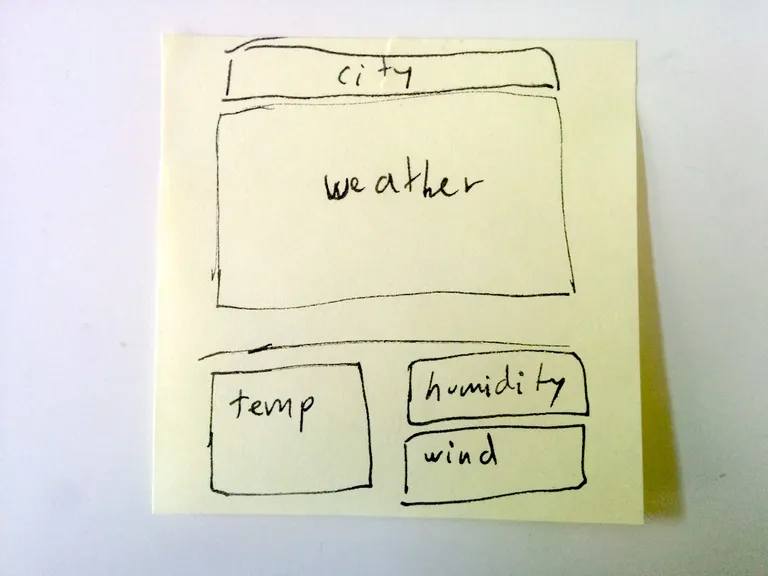 city
weather
temp
humidity
wind